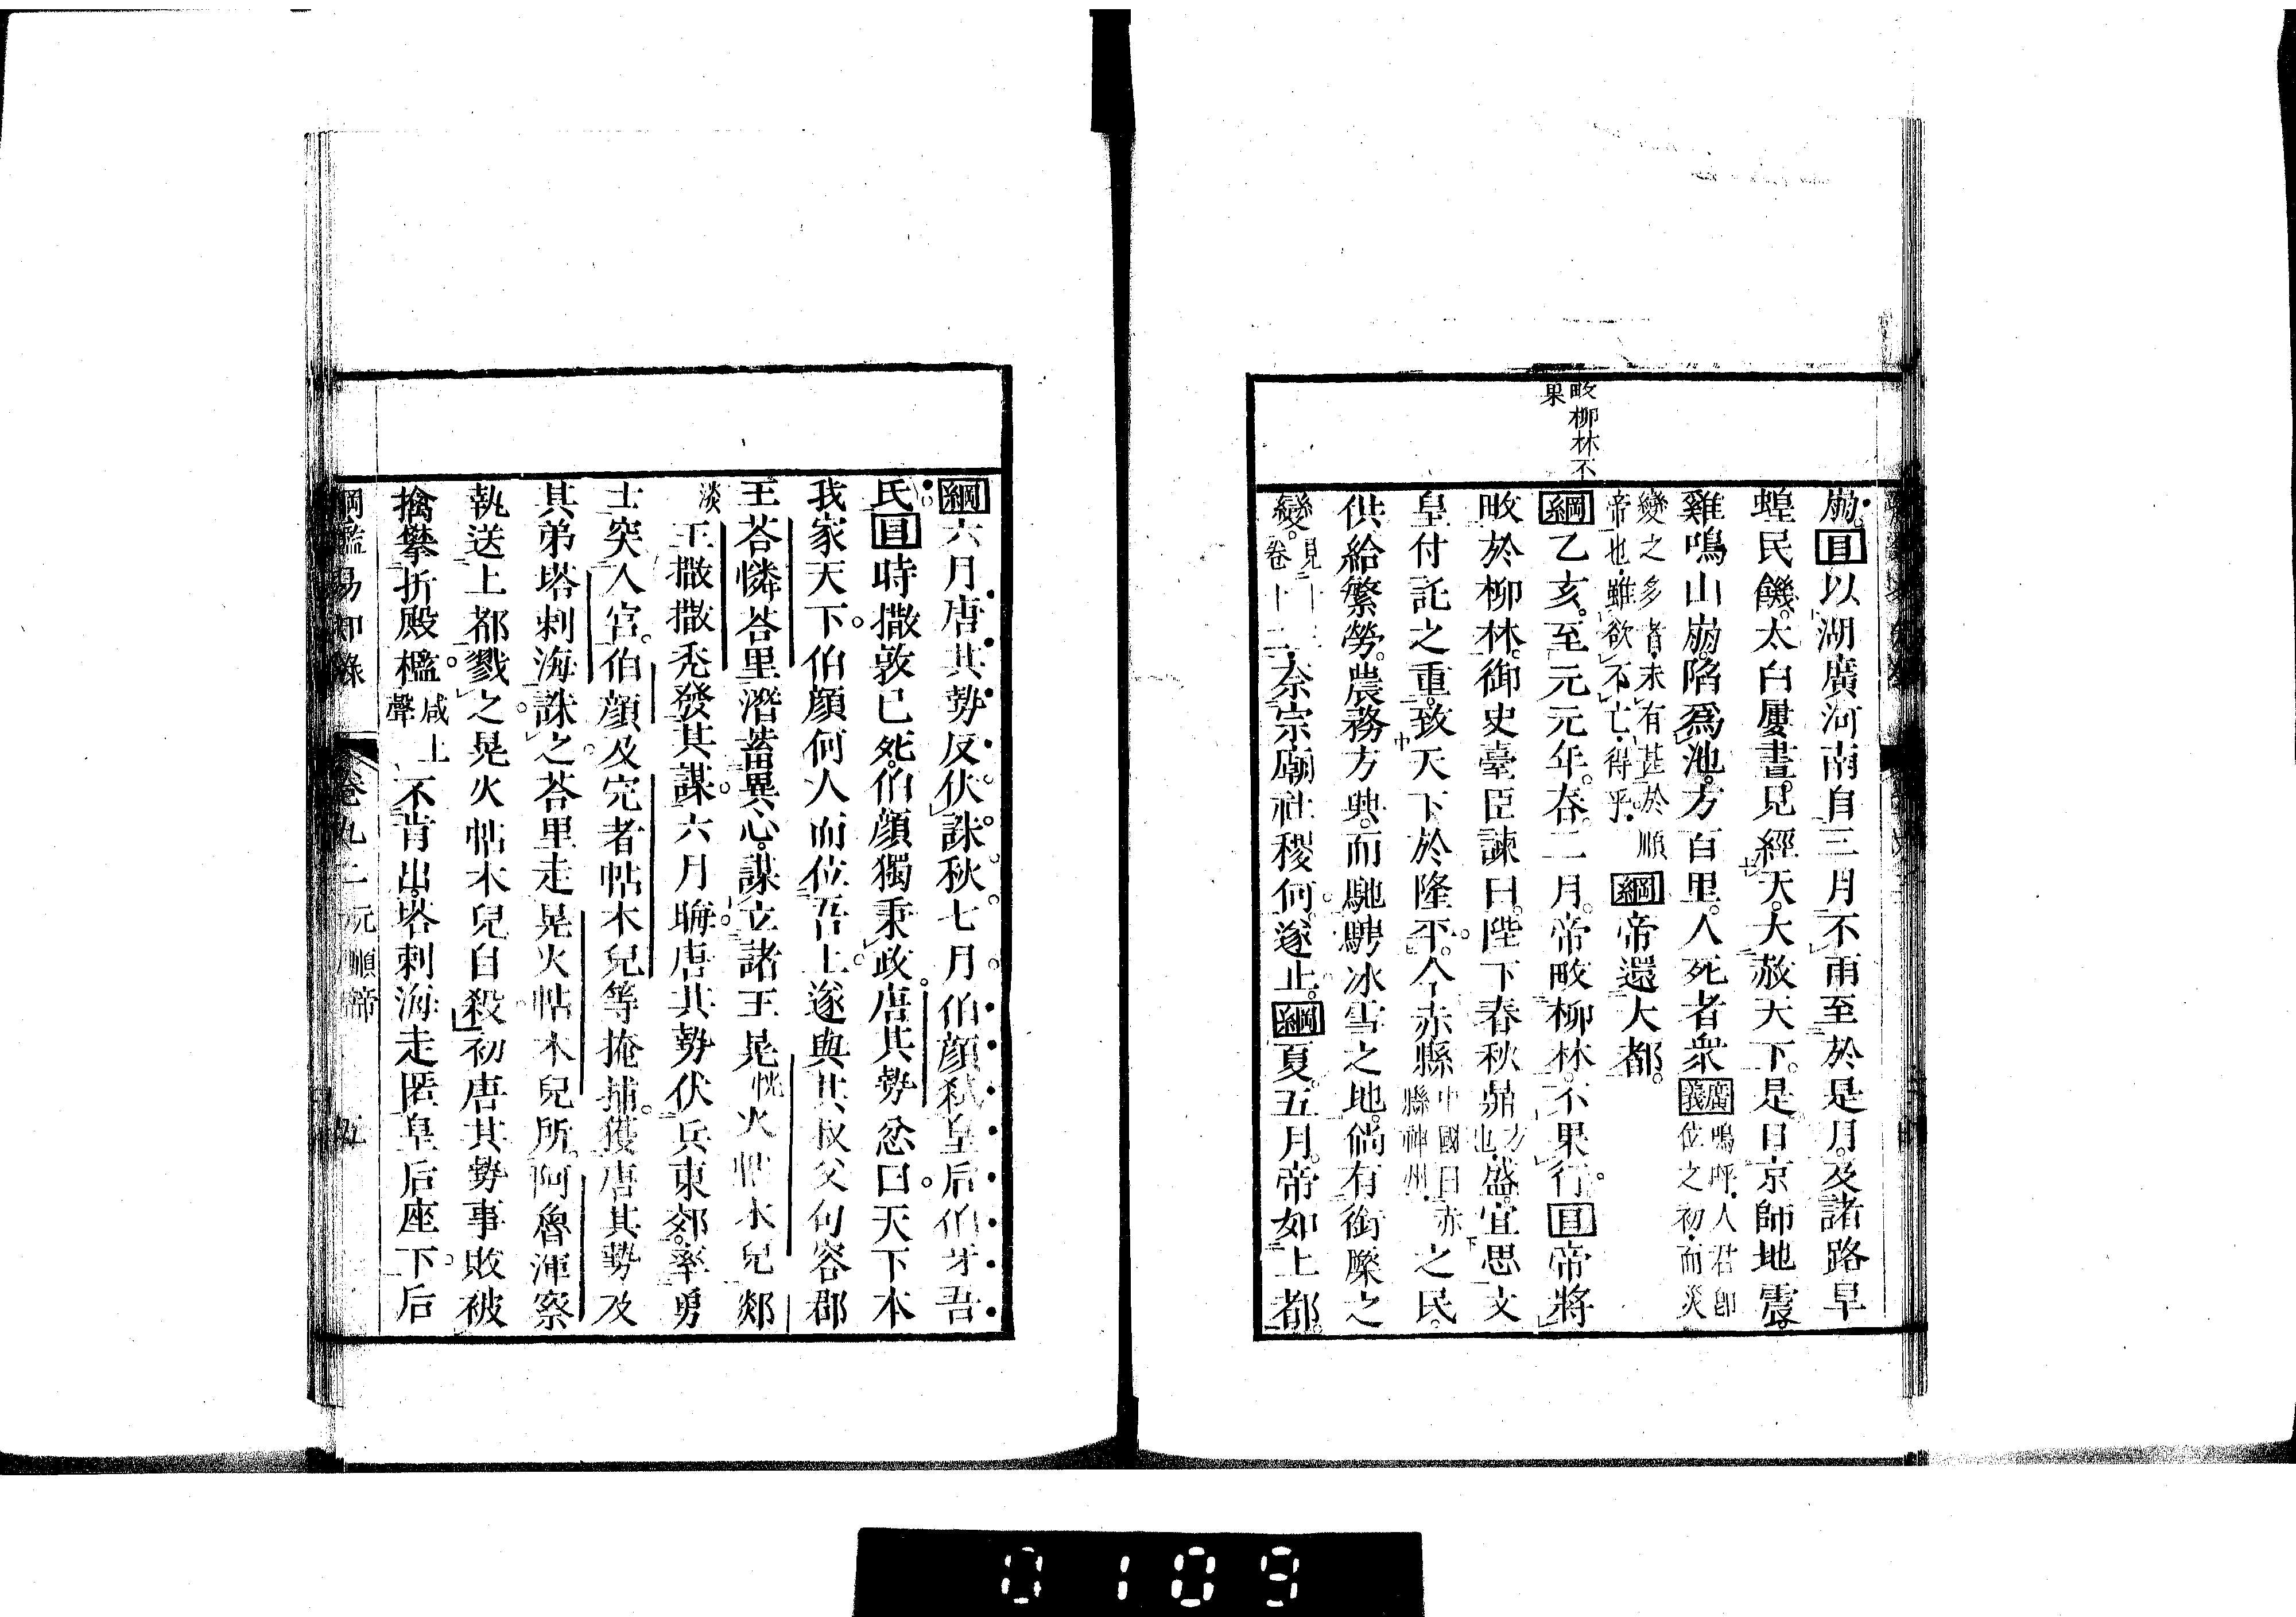 畋柳林不
果
崩。目以湖廣河南自三月不雨至於是月。及諸路旱
蝗民饑。太白屢晝見經天。大赦天下。是日京師地震。
雞鳴山崩。陷爲池。方百里。人死者衆。廣義鳴呼。人君卽位之初。而災
變之多者。未有甚於順帝也。雖欲不亡。得乎。綱帝還大都。
綱乙亥。至元元年。春二月。帝畋柳林。不果行。目帝將
畋於柳林。御史臺臣諫曰。陛下春秋鼎方也。盛。宜思文
皇付託之重。致天下於隆平。今赤縣中國曰赤縣神州。之民。
供給繁勞。農務方興。而馳騁冰雪之地。倘有銜橜之
變。見卷十二 奈宗廟社稷何。遂止。綱夏。五月。帝如上都。
綱六月唐其勢反伏誅。秋七月伯顏弒皇后伯牙吾
氏目時撒敦已死。伯顏獨秉政。唐其勢忿曰。天下本
我家天下。伯顏何人而位吾上。遂與其叔父句容郡
王荅憐荅里潛蓄異心。謀立諸王晃恍火帖木兒郯
淡王撒撒禿發其謀。六月晦唐其勢伏兵東郊。率勇
士突入宮。伯顏及完者帖木兒等掩捕。獲唐其勢及
其弟塔剌海誅之。荅里走晃火帖木兒所。阿魯渾察
執送上都戮之。晃火帖木兒自殺。初唐其勢事敗被
擒攀折殿檻。咸上聲不肯出。塔剌海走匿皇后座下。后
綱鑑易知錄 卷九二 元順帝 五
0109